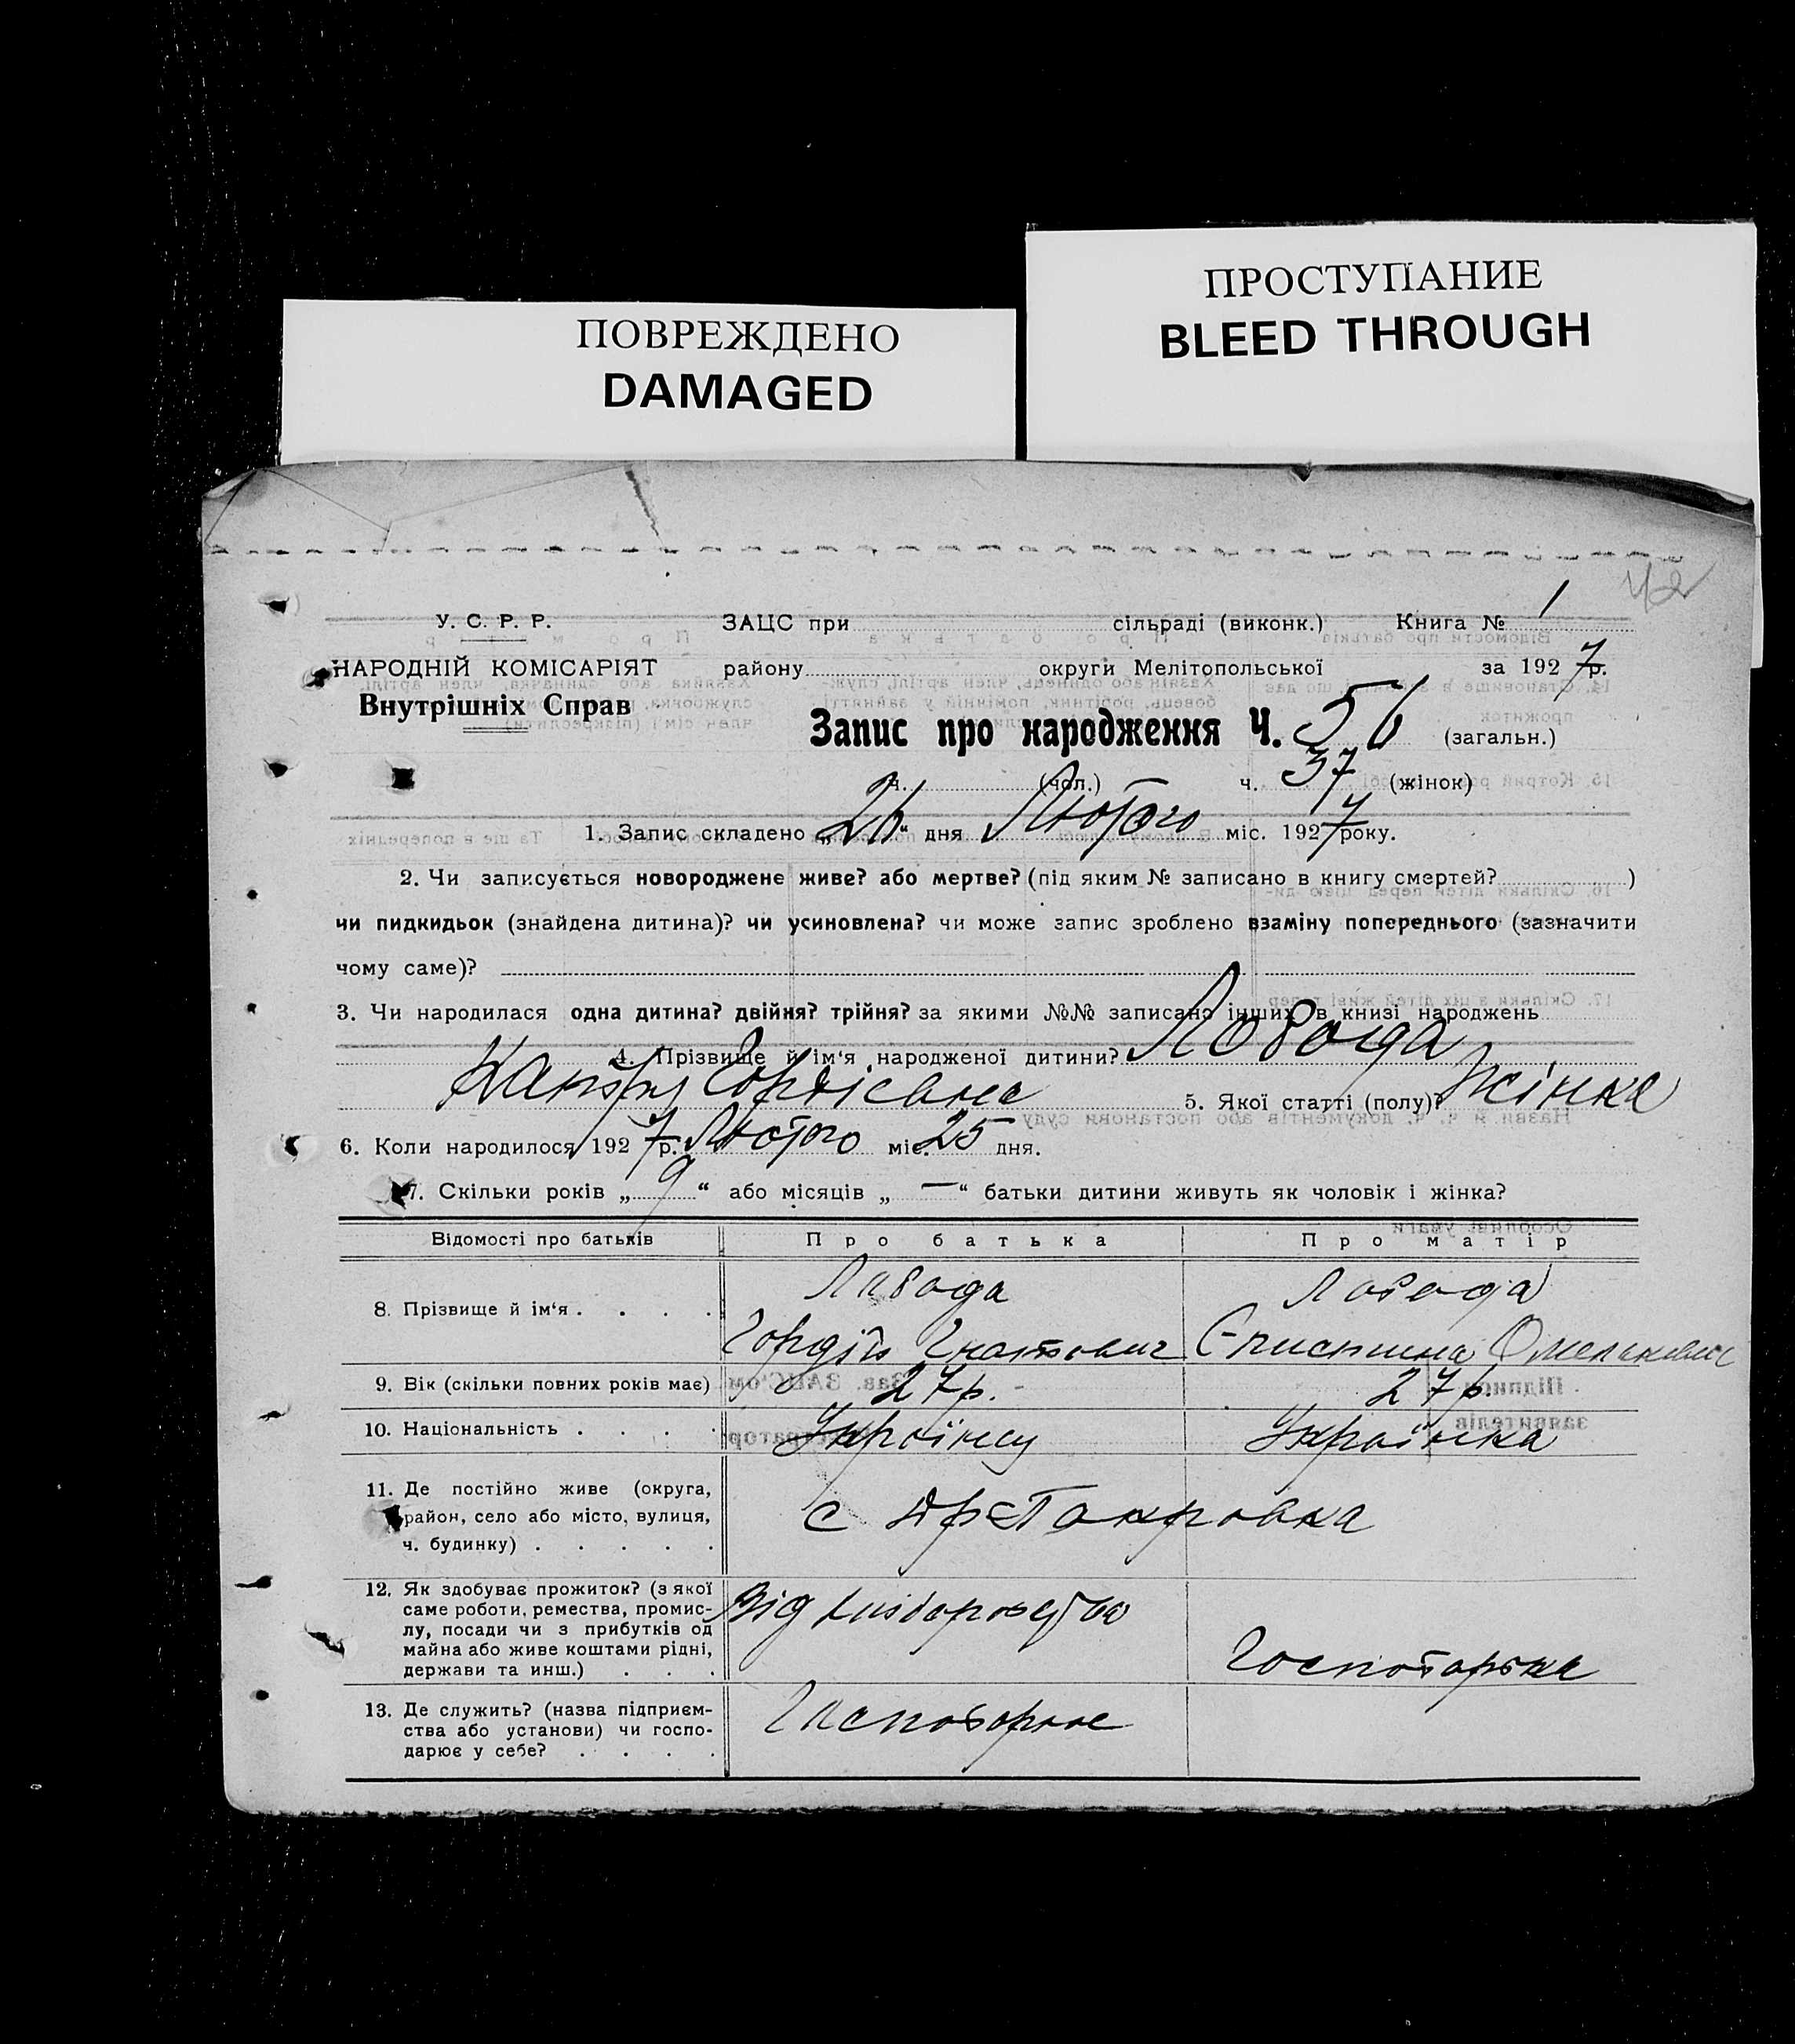 ПОВРЕЖДЕНО
DAMAGED
ПРОСТУПАНИЕ
BLEED THROUGH
У. С. Р. Р.
НАРОДНІЙ КОМІСАРІЯТ
Внутрішніх Справ
ЗАЦС при сільраді (виконк.) Книга № 1
району округи Мелітопольської за 1927р.
Запис про народження Ч. 56 (загальн.)
ч. (чол.) ч. 37 (жінок)
1. Запис складено „26“ дня Лютого міс. 1927 року.
2. Чи записується новороджене живе? або мертве? (під яким № записано в книгу смертей? )
чи пидкидьок (знайдена дитина)? чи усиновлена? чи може запис зроблено взаміну попереднього (зазначити
чому саме)?
3. Чи народилася одна дитина? двійня? трійня? за якими №№ записано інших в книзі народжень
4. Прізвище й ім‘я народженої дитини? Лобода
Гордіевна 5. Якої статті (полу)? Жінка
6. Коли народилося 1927р. Лютого міс. 25 дня.
7. Скільки років „ 9 “ або місяців „ — “ батьки дитини живуть як чоловік і жінка?
Відомості про батьків Про батька Про матір
8. Прізвище й ім‘я . . . . Лобода Лобода
Гордій Гнатович
9. Вік (скільки повних років має) 27р. 27р.
10. Національність . . . . Українец Українка
11. Де постійно живе (округа,
район, село або місто, вулиця,
ч. будинку) . . . . .
с
12. Як здобуває прожиток? (з якої
саме роботи, ремества, промис-
лу, посади чи з прибутків од
майна або живе коштами рідні,
держави та инш.) . . .
Від
Господарка
13. Де служить? (назва підприєм-
ства або установи) чи госпо-
дарює у себе? . . . .